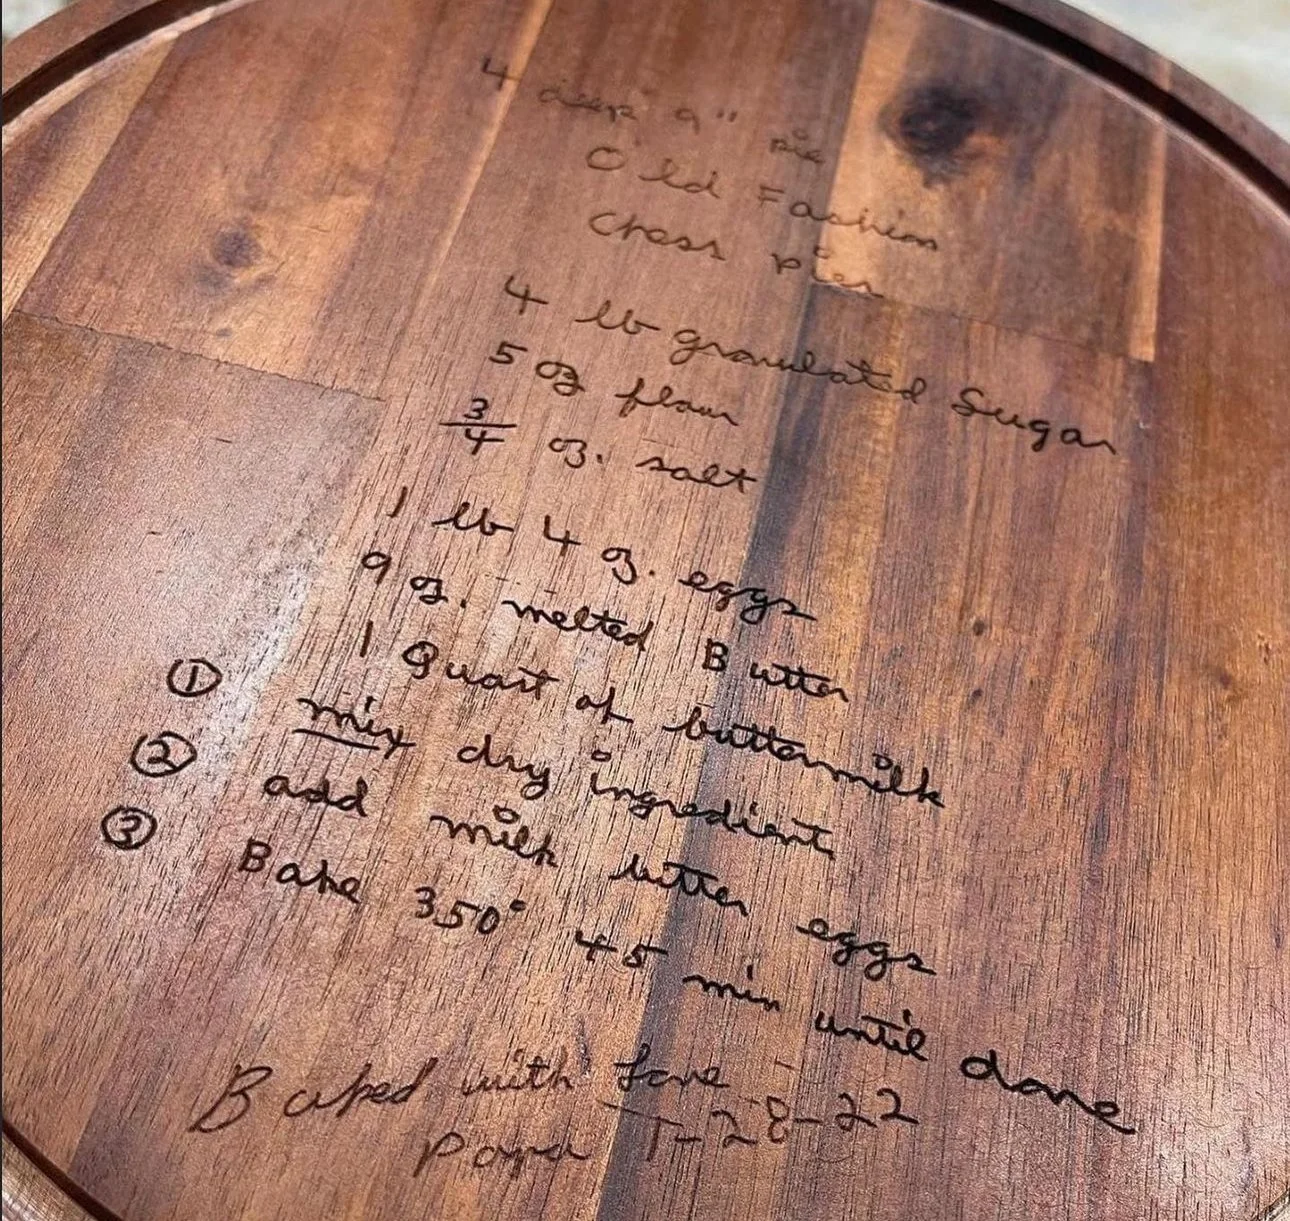 4 deep 9" pie
Old Fashion
Chess pies
4 lb granulated Sugar
5 oz flour
3/4 oz. salt
1 lb 4 oz. eggs
9 oz. melted Butter
1 Quart of buttermilk
① mix dry ingredient
② add milk butter eggs
③ Bake 350° 45 min until done
Baked with love -
Papa 1-28-22